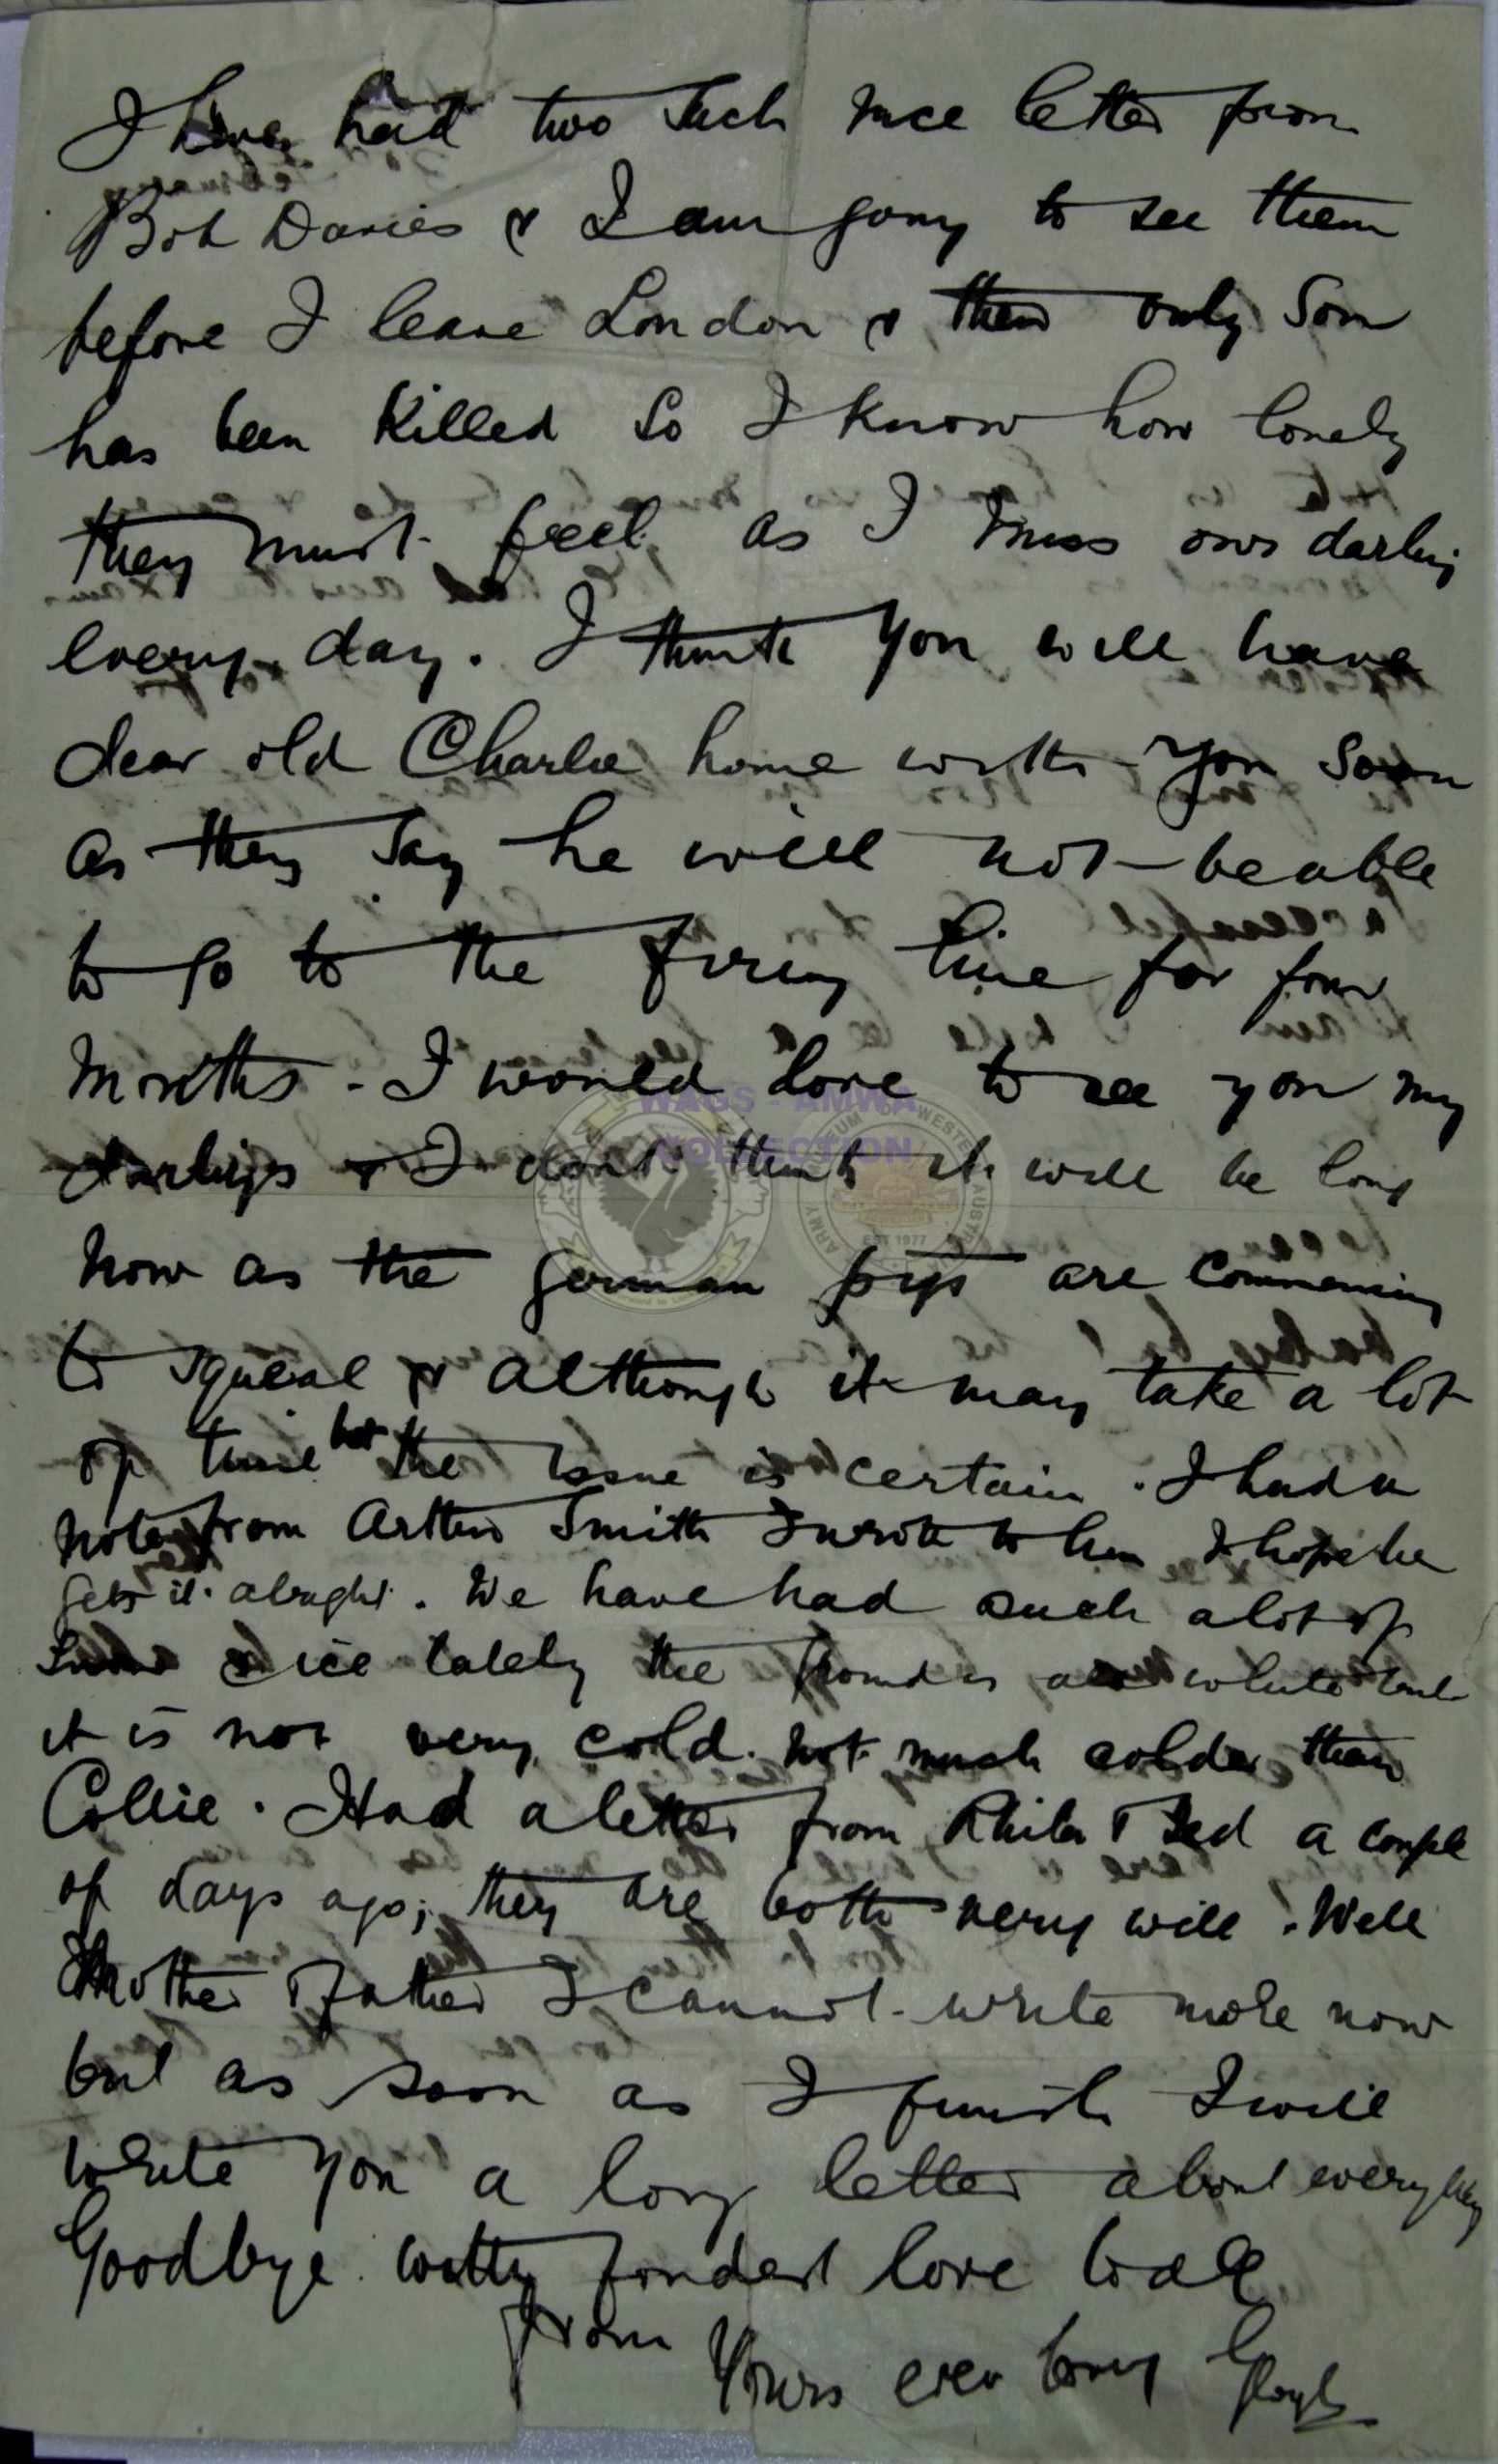 I have had two such nice letter from
Bob Davies & I am going to see them
before I leave London & their only son
has been killed so I know how lonely
they must feel as I miss our darling
every day. I think you will have
dear old Charlie home with you soon
as they say he will not be able
to go to the firing line for four
months - I would love to see you my
darlings & I dont think it will be long
now as the german pigs are commencing
to squeal & although it may take a lot
of time but the issue is certain. I had a
note from Arthur Smith I wrote to him I hope he
gets it alright. We have had such a lot of
snow & ice lately the ground is all white but
it is not very cold. not much colder than
Collie. Had a letter from & Ted a couple
of days ago; they are both very well. Well
Mother & Father I cannot write more now
but as soon as I finish I will
write you a long letter about everything
Goodbye with fondest love to all
from
Yours ever loving
WAGS - AMWA
COLLECTION
ARMY MUSEUM OF WESTERN AUSTRALIA
EST 1977